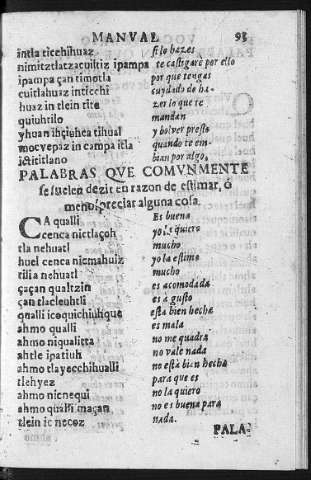 MANVAL 93
intla ticchihuaz si lo hazes
nimitztlatzacuiltiz ipampa te castigarè por ello
ipampa çan timotla por que tengas
cuitlahuaz inticchi cuydado de ha-
huaz in tlein tite zer lo que te
quiuhtilo mandan
yhuan ihçiuhca tihual y bolver presto
mocvepaz in campa itla quando te em
ictititlano bian por algo,
PALABRAS QVE COMVNMENTE
se suelen dezir en razon de estimar, ò
menospreciar alguna cosa.
CA qualli Es buena
cenca nictlaçoh yo le quiero
tla nehuatl mucho
huel cenca nicmahuiz yo la estimo
tilia nehuatl mucho
çaçan qualtzin es acomodada
çan tlacleuhtli es a gusto
qnalli icoquichiuhque esta bien hecha
ahmo qualli es mala
ahmo niqualitta no me quadra
ahtle ipatiuh no vale nada
ahmo tlayecchihualli no està bien hecha
tlehyez para que es
ahmo nicnequi no la quiero
ahmo qualli maçan no es buena para
tlein ic necoz nada.
PALA-